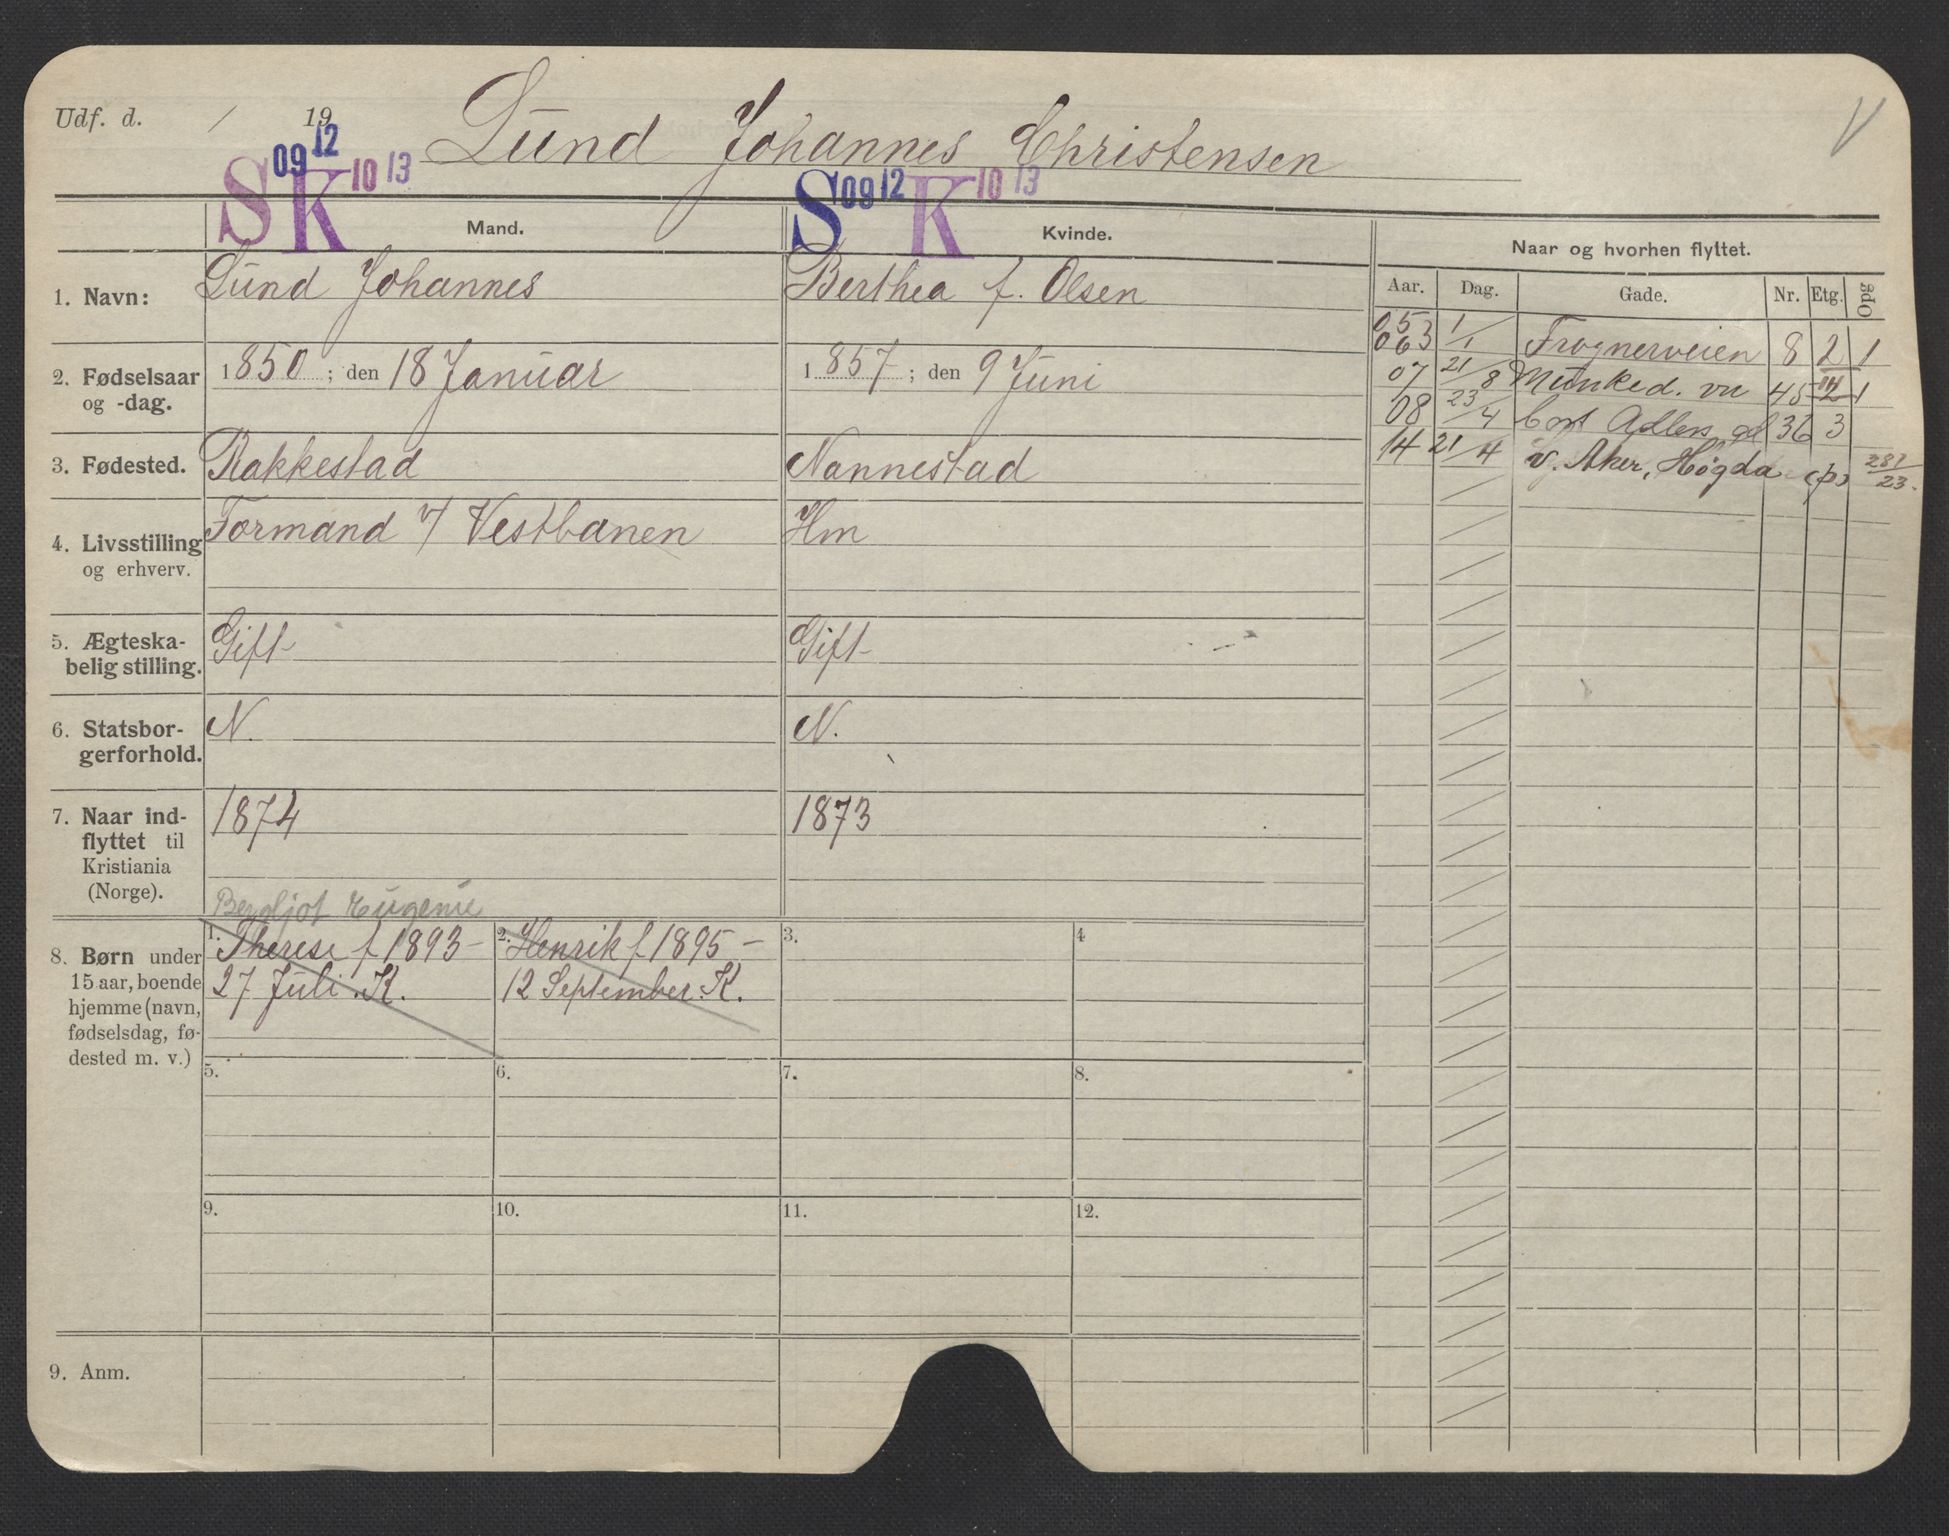 Udf. d. / 19
Lund Johannes Christensen
V
S 09 12 K 10 13
S 09 12 K 10 13
Mand.
Kvinde.
Naar og hvorhen flyttet.
Aar. Dag. Gade. Nr. Etg. Opg
1. Navn: Lund Johannes
Berthea f. Olsen
2. Fødselsaar og -dag. 1850; den 18 Januar
1857; den 9 Juni
3. Fødested. Rakkestad
Nannestad
4. Livsstilling og erhverv. Formand v/ Vestbanen
Hm
5. Ægteska-
belig stilling. Gift
Gift
6. Statsbor-
gerforhold. N.
N.
7. Naar ind-
flyttet til
Kristiania
(Norge). 1874
1873
8. Børn under
15 aar, boende
hjemme (navn,
fødselsdag, fø-
dested m. v.)
Bergljot Eugenie
1. Therese f 1893 -
27 Juli. K.
2. Henrik f 1895 -
12 September. K.
3.
4
5.
6.
7.
8.
9.
10.
11.
12.
9. Anm.
05 1/
063 /1 Frognerveien 8 2 1
07 21/8 Munked. vn 45 1
08 23/4 Cort Adlers gd 36 3
14 21/4 v. Aker, Høgda (p) 281/23.